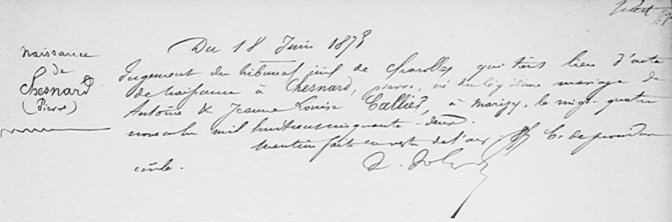 Naissance
de
Chesnard
(Pierre)
Du 18 Juin 1878
Jugement du tribunal civil de Charolles qui tient lieu d'acte
de naissance à Chesnard, pierre, né du légitime mariage de
Antoine & Jeanne Louise Callier, à Marizy, le vingt quatre
novembre mil huit cent cinquante deux.
Mention faite en vertu de l'art. C. de procédure
civile.